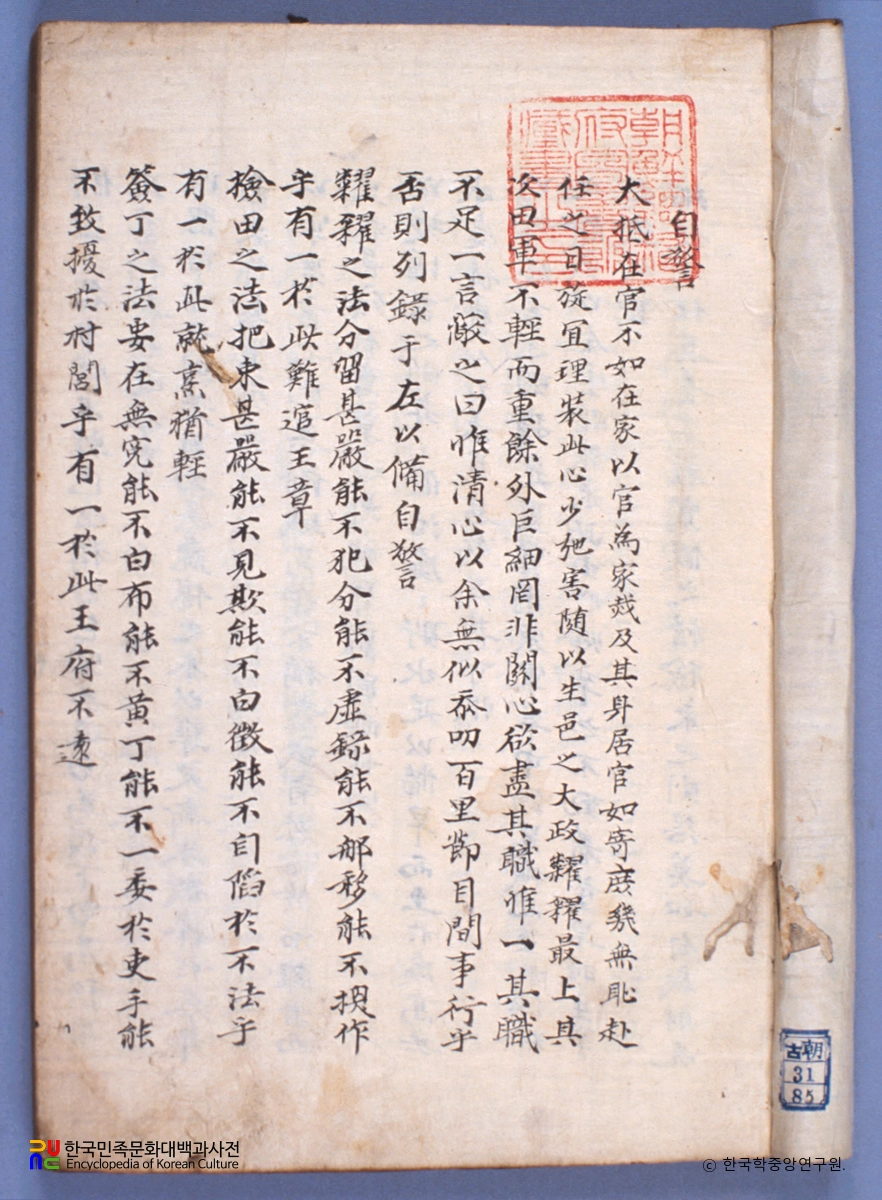 自警
大抵在官不如在家以官為家烖及其身居官如寄庶幾無恥赴
任之日旋冝理装此心少弛害随以生邑之大政糶糴最上其
次田軍不輕而重餘外巨細罔非關心欲盡其職惟一其職
不足一言蔽之曰惟清心以余無似忝叨百里節目間事行乎
否則列錄于左以備自警
糶糴之法分留甚嚴能不犯分能不虛錄能不那移能不提作
乎有一於此難逭王章
撿田之法把束甚嚴能不見欺能不白徴能不自陷於不法乎
有一於此就烹猶輕
簽丁之法要在無冤能不白布能不黄丁能不一委於吏手能
不致擾於村閭乎有一於此王府不遠
朝
古
31
85
한국민족문화대백과사전
Encyclopedia of Korean Culture
© 한국학중앙연구원.